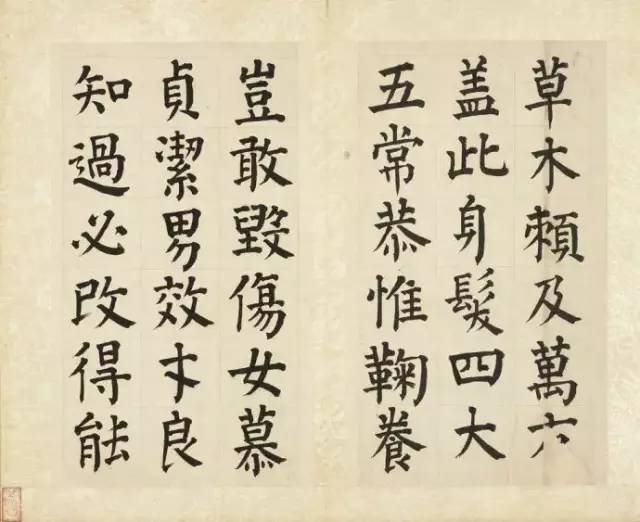 草木頼及萬方
盖此身髮四大
五常恭惟鞠養
豈敢毀傷女慕
貞潔男效才良
知過必改得能